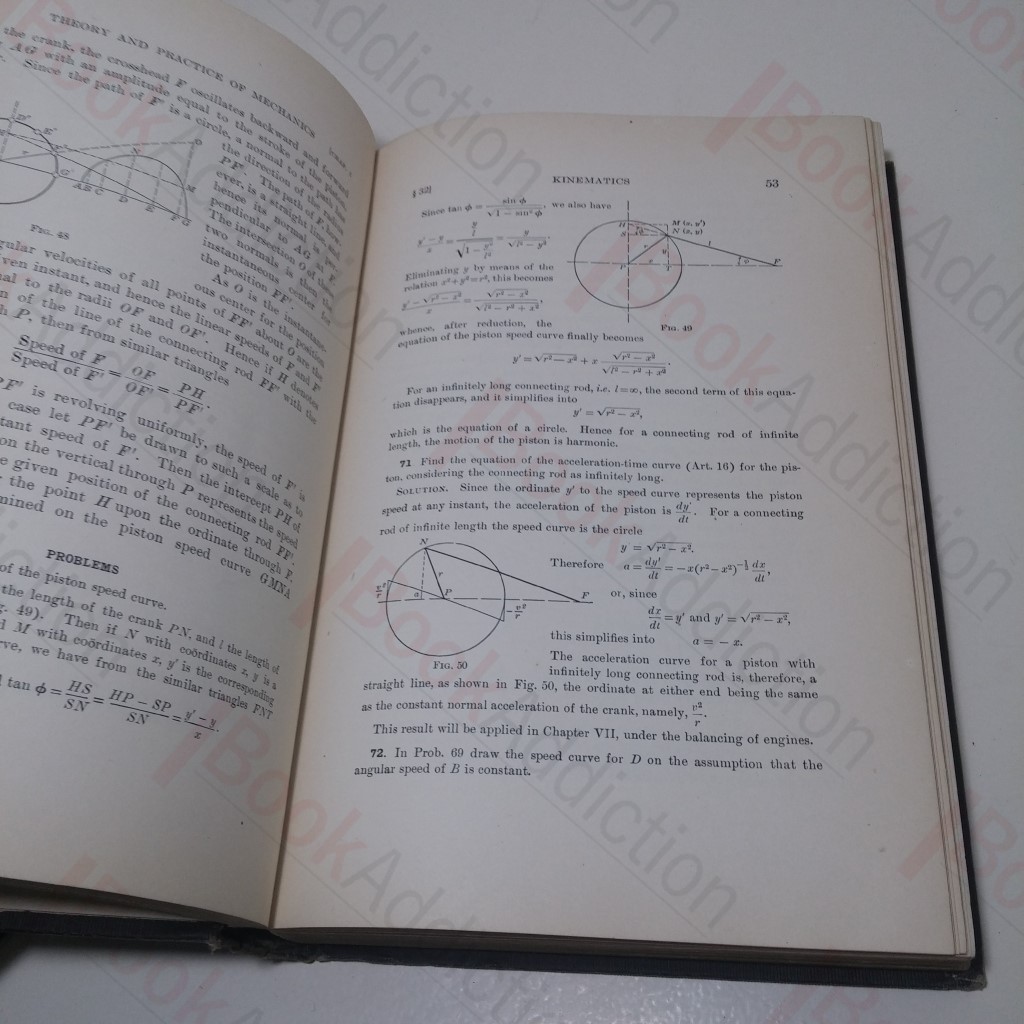 THEORY AND PRACTICE OF MECHANICS
the crank, the crosshead F oscillates backward and forward
AG with an amplitude equal to the stroke of the piston
Since the path of F' is a circle, a normal to the path has
the direction of the radius
PF'. The path of F, how-
ever, is a straight line, and
hence its normal is per-
pendicular to AG at F.
The intersection O of the
two normals is then the
instantaneous center for
the position FF'.
FIG. 48
As O is the instantane-
ous center for the position
gular velocities of all points of FF' about O are the
ven instant, and hence the linear speeds of F and F'
nal to the radii OF and OF'. Hence if H denotes
n of the line of the connecting rod FF' with the
h P, then from similar triangles
Speed of F / Speed of F' = OF / OF' = PH / PF'.
PF' is revolving uniformly, the speed of F' is
case let PF' be drawn to such a scale as to
tant speed of F'. Then the intercept PH of
on the vertical through P represents the speed
e given position of the connecting rod FF'.
the point H upon the ordinate through F,
mined on the piston speed curve GMNA
PROBLEMS
of the piston speed curve.
the length of the crank PN, and l the length of
g. 49). Then if N with coördinates x, y is a
d M with coördinates x, y' is the corresponding
rve, we have from the similar triangles FNT
tan ϕ = HS / SN = HP − SP / SN = y' − y / x.
§ 32]
KINEMATICS
53
Since tan ϕ = sin ϕ / √1 − sin² ϕ, we also have
y' − y / x = y / l / √1 − y² / l² = y / √l² − y².
Eliminating y by means of the
relation x²+y²=r², this becomes
y' − √r² − x² / x = √r² − x² / √l² − r² + x²,
whence, after reduction, the
M (x, y')
N (x, y)
FIG. 49
equation of the piston speed curve finally becomes
y' = √r² − x² + x √r² − x² / √l² − r² + x².
For an infinitely long connecting rod, i.e. l=∞, the second term of this equa-
tion disappears, and it simplifies into
y' = √r² − x²,
which is the equation of a circle. Hence for a connecting rod of infinite
length, the motion of the piston is harmonic.
71 Find the equation of the acceleration-time curve (Art. 16) for the pis-
ton, considering the connecting rod as infinitely long.
SOLUTION. Since the ordinate y' to the speed curve represents the piston
speed at any instant, the acceleration of the piston is dy' / dt. For a connecting
rod of infinite length the speed curve is the circle
y = √r² − x².
Therefore a = dy' / dt = − x(r² − x²)^−½ dx / dt,
or, since
dx / dt = y' and y' = √r² − x²,
this simplifies into a = − x.
N
r
P
F
a
v² / r
− v² / r
FIG. 50
The acceleration curve for a piston with
infinitely long connecting rod is, therefore, a
straight line, as shown in Fig. 50, the ordinate at either end being the same
as the constant normal acceleration of the crank, namely, v² / r.
This result will be applied in Chapter VII, under the balancing of engines.
72. In Prob. 69 draw the speed curve for D on the assumption that the
angular speed of B is constant.
BookAddiction